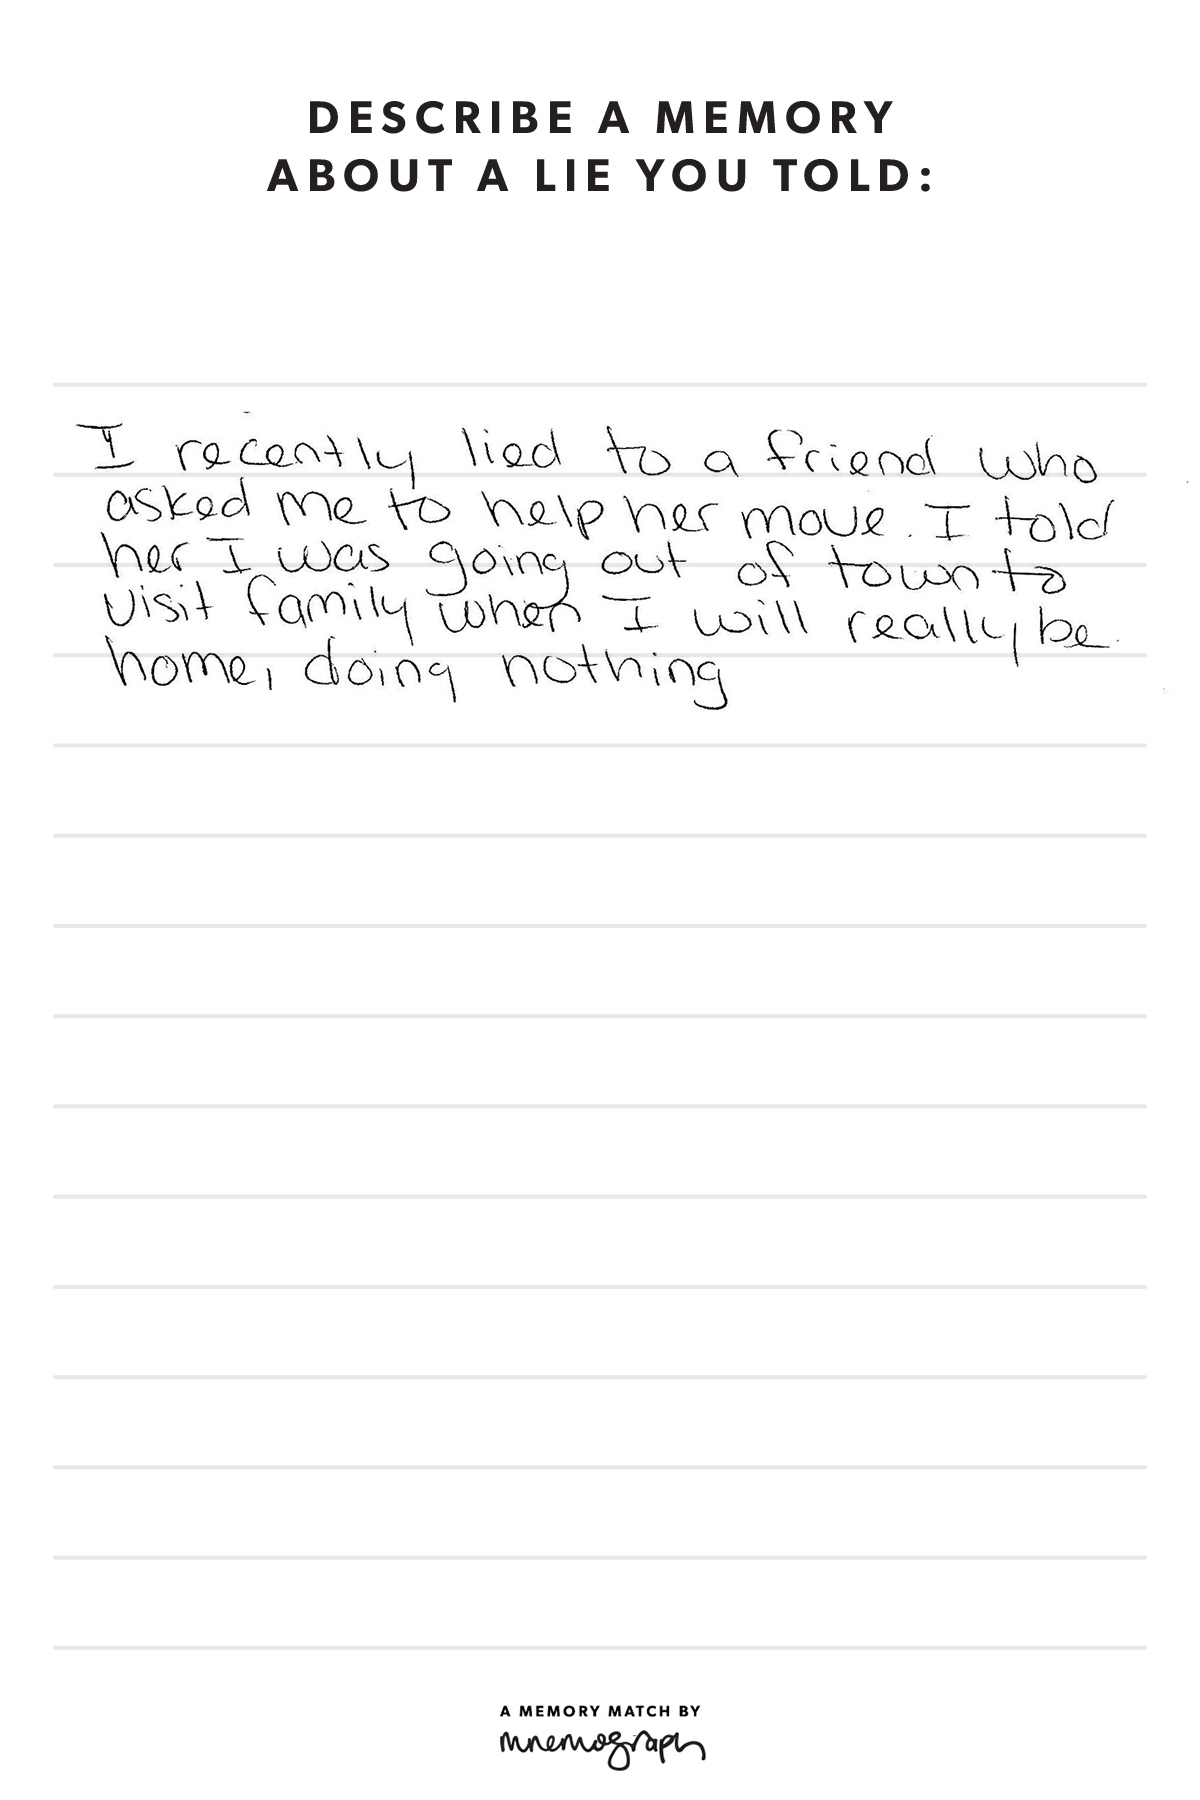 DESCRIBE A MEMORY
ABOUT A LIE YOU TOLD:
I recently lied to a friend who
asked me to help her move. I told
her I was going out of town to
visit family when I will really be
home, doing nothing
A MEMORY MATCH BY
mnemograph